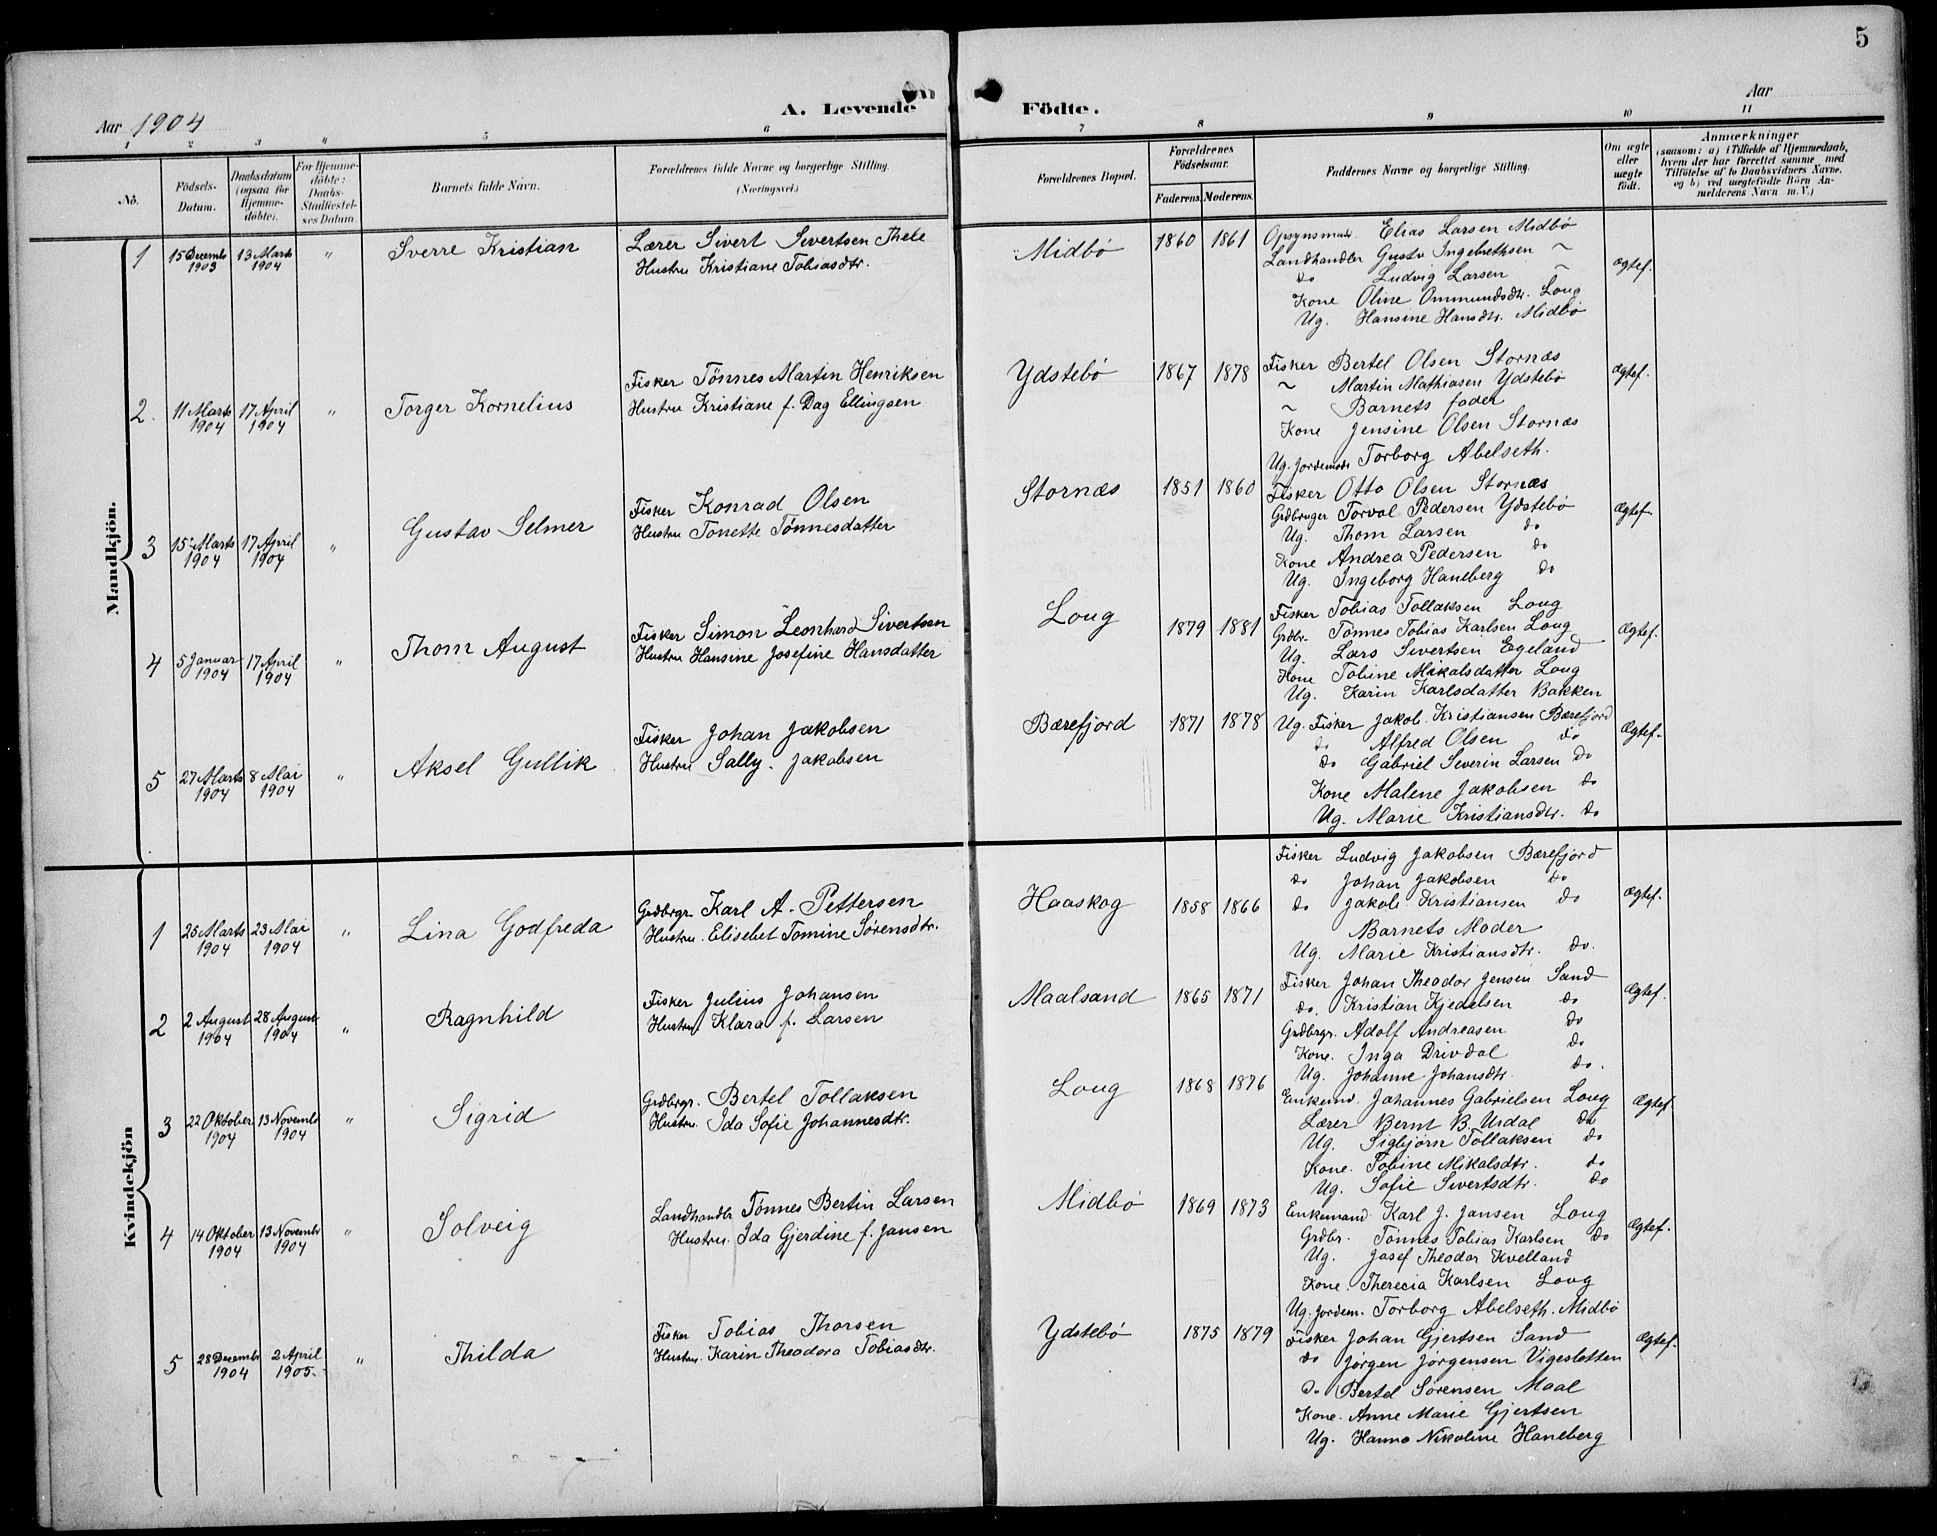 5
Aar 1904
A. Levende Födte.
Aar
1 2 3 " 5 6 7 8 9 10 11
No.
Födsels-Datum.
Daabsdatum (ogsaa for Hjemme-döbte).
For Hjemme-döbte: Daabs-Stadfæstel-ses Datum.
Barnets fulde Navn.
Forældrenes fulde Navne og borgerlige Stilling. (Næringsvei.)
Forældrenes Bopæl.
Forældrenes Födselsaar.
Faderens. Moderens.
Faddernes Navne og borgerlige Stilling.
Om ægte eller uægte födt.
Anmærkninger
(saasom: a) i Tilfælde af Hjemmedaab, hvem der har forrettet samme, med Tilföielse af to Daabsvidners Navne, og b) ved uægtefödte Börn An-melderens Navn m. V.)
Mandkjön.
1 15 Decemb 1903 13 Marts 1904 " Sverre Kristian
Lærer Sivert Severtsen Thele
Hustru Kristiane Tobiasdtr.
Midbö 1860 1861
Opsynsmd. Elias Larsen Midbö
Landhandler Gustv Ingebrethsen ~
do Ludvig Larsen ~
Kone Oline Ommundsdtr. Loug
Ug. Hansine Hansdtr. Midbö
Ægtef.
2. 11 Marts 1904 17 April 1904 " Torger Kornelius
Fisker Tönnes Martin Henriksen
Hustru Kristiane f. Dag Ellingsen
Ydstebö 1867 1878
Fisker Bertel Olsen Stornæs
~ Martin Mathiasen Ydstebö
~ Barnets fader
Kone Jensine Olsen Stornæs
Ug. Jordemdr Torborg Abelseth.
Ægtef.
3 15 Marts 1904 17 April 1904 " Gustav Selmer
Fisker Konrad Olsen
Hustru Tonette Tönnesdatter
Stornæs 1851 1860
Fisker Otto Olsen Stornæs
Grdbruger Torval Pedersen Ydstebö
Ug. Thom Larsen do
Kone Andrea Pedersen do
Ug. Ingeborg Haneberg do
Ægtef.
4 5 Januar 1904 17 April 1904 " Thom August
Fisker Simon Leonhard Sivertsen
Hustru Hansine Josefine Hansdatter
Loug 1879 1881
Fisker Tobias Tollaksen Loug
Grdbr. Tönnes Tobias Karlsen Loug
Ug. Lars Sivertsen Egeland
Kone Tobine Mikalsdatter Loug
Ug. Karin Karlsdatter Bakken
Ægtef.
5 27 Marts 1904 8 Mai 1904 " Aksel Gullik
Fisker Johan Jakobsen
Hustru Sally. Jakobsen
Bærefjord 1871 1878
Ug. Fisker Jakob Kristiansen Bærefjord
do Alfred Olsen do
do Gabriel Severin Larsen do
Kone Malene Jakobsen do
Ug. Marie Kristiansdtr. do
Ægtef.
Kvindekjön
1 25 Marts 1904 23 Mai 1904 " Lina Godfreda
Grdbrgr. Karl A. Pettersen
Hustru. Elisebet Tomine Sörensdtr.
Haaskog 1858 1866
Fisker Ludvig Jakobsen Bærefjord
do Johan Jakobsen do
do Jakob Kristiansen do
Barnets Moder
Ug. Marie Kristiansdtr. do.
Ægtef.
2 2 August 1904 28 August 1904 " Ragnhild
Fisker Julius Johansen
Hustru Klara f. Larsen
Maalsand 1865 1871
Fisker Johan Theodor Jensen Sand
do. Kristian Kjedelsen do
Grdbrgr. Adolf Andreasen do
Kone. Inga Drivdal do
Ug. Johanne Johansdtr. do.
Ægtef.
3 22 Oktober 1904 13 Novemb 1904 " Sigrid
Grdbrgr. Bertel Tollaksen
Hustru. Ida Sofie Johannesdtr.
Loug 1868 1876
Enkemd. Johannes Gabrielsen Loug
Lærer Bernt B. Urdal do
Ug. Sigbjörn Tollaksen do
Kone. Tobine Mikalsdtr. do
Ug. Sofie Sivertsdtr. do
Ægtef.
4 14 Oktober 1904 13 Novembr 1904 " Solveig
Landhandlr Tönnes Bertin Larsen
Hustru. Ida Gjerdine f. Jansen
Midbö 1869 1873
Enkemand Karl J. Jansen Loug
Grdbr. Tönnes Tobias Karlsen do
Ug. Josef Theodor Kvelland
Kone. Therecia Karlsen Loug
Ug. Jordem. Torborg Abelseth. Midbö
Ægtef.
5 28 Decembr 1904 2 April 1905. " Thilda
Fisker Tobias Thorsen
Hustru. Karin Theodora Tobiasdtr.
Ydstebö 1875 1879
Fisker Johan Gjertsen Sand
do Jörgen Jörgensen Vigesletten
do Bertel Sörensen Maal
Kone. Anne Marie Gjertsen
Ug. Hanna Nikoline Haneberg
Ægtef.